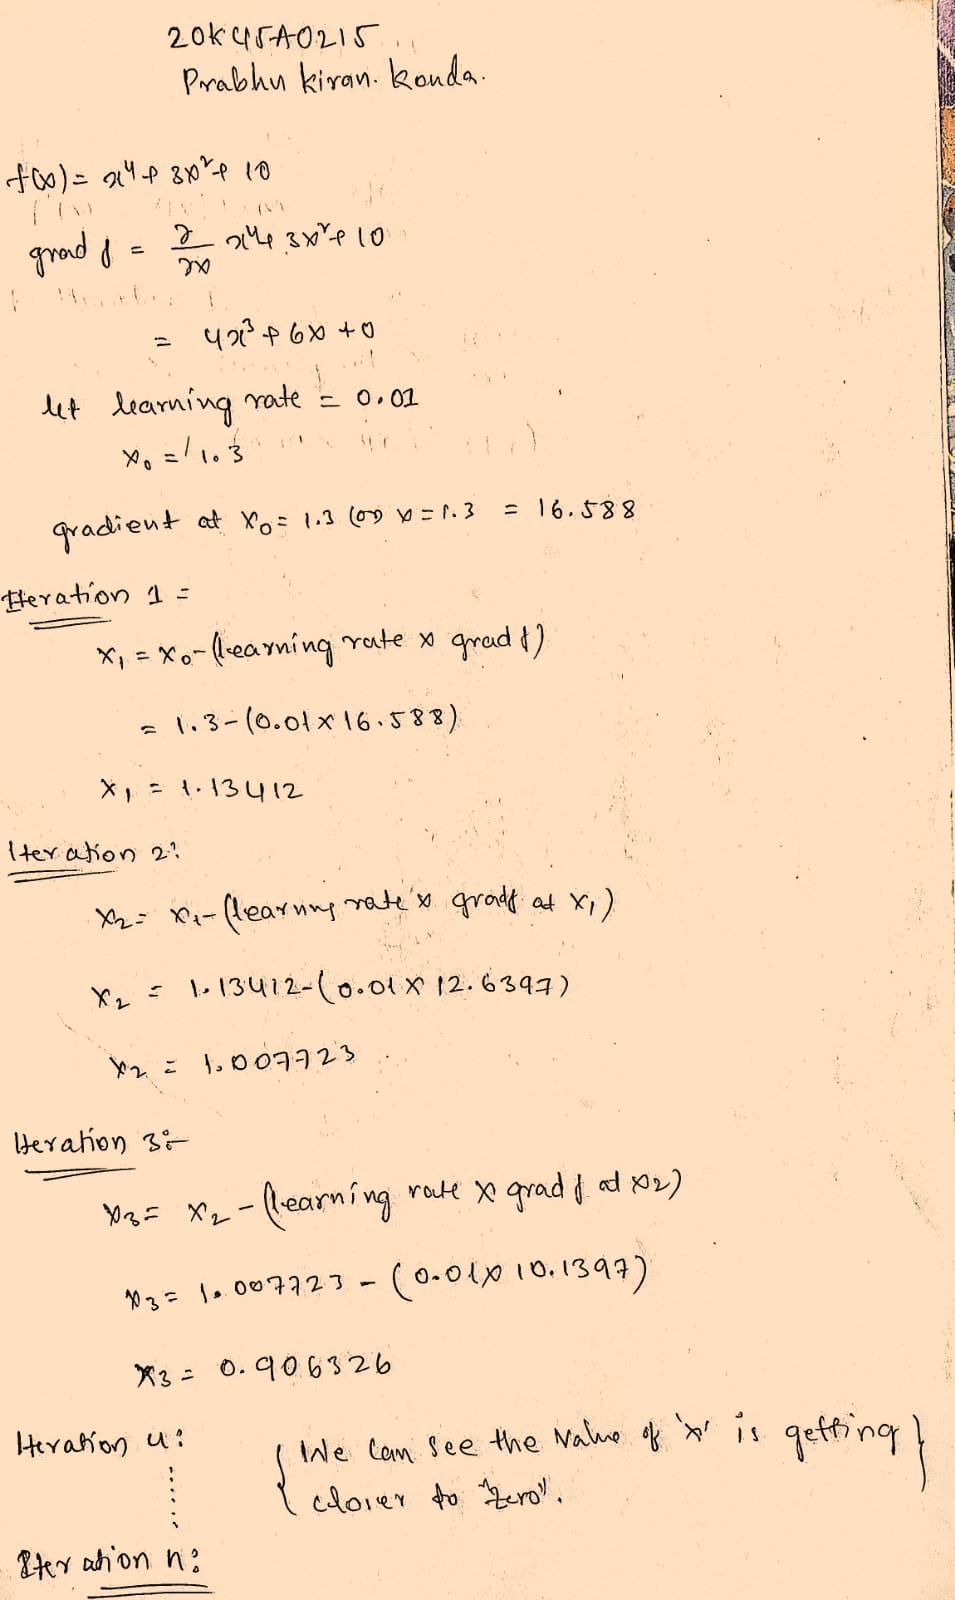 20K45A0215
Prabhu kiran. konda.
f(x) = x⁴ + 3x² + 10
grad f = ∂/∂x x⁴ + 3x² + 10
= 4x³ + 6x + 0
let learning rate = 0.01
x₀ = 1.3
gradient at x₀ = 1.3 (or) x = 1.3 = 16.588
Iteration 1 =
x₁ = x₀ - (learning rate x grad f)
= 1.3 - (0.01 x 16.588)
x₁ = 1.13412
Iteration 2:
x₂ = x₁ - (learning rate x gradf at x₁)
x₂ = 1.13412 - (0.01 x 12.6397)
x₂ = 1.007723
Iteration 3:-
x₃ = x₂ - (learning rate x grad f at x₂)
x₃ = 1.007723 - (0.01 x 10.1397)
x₃ = 0.906326
Iteration 4:
{ We can see the Value of 'x' is getting }
closer to "zero".
Iteration n: